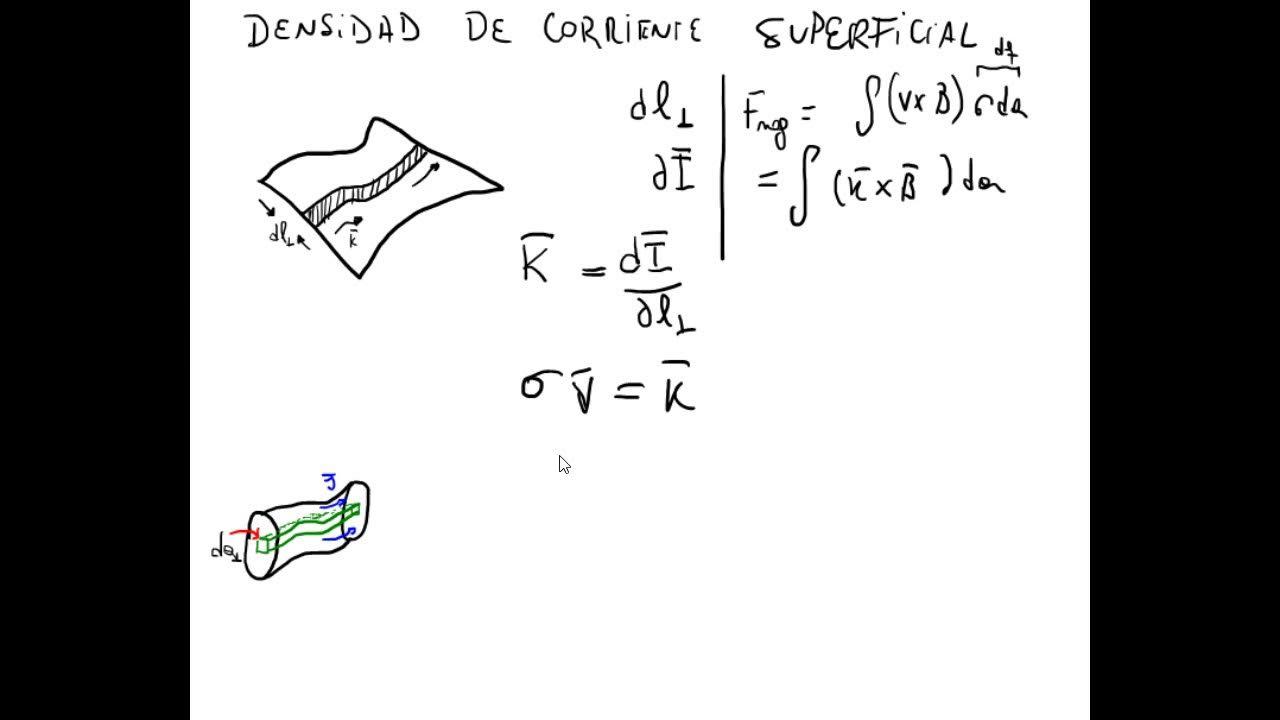 DENSIDAD DE CORRIENTE SUPERFICIAL
dq
dl⊥
F̄mag = ∫(v×B) σda
dĪ
= ∫(K̄×B̄)da
dl⊥
K̄
K̄ = dĪ
dl⊥
σv̄ = K̄
J̄
da⊥